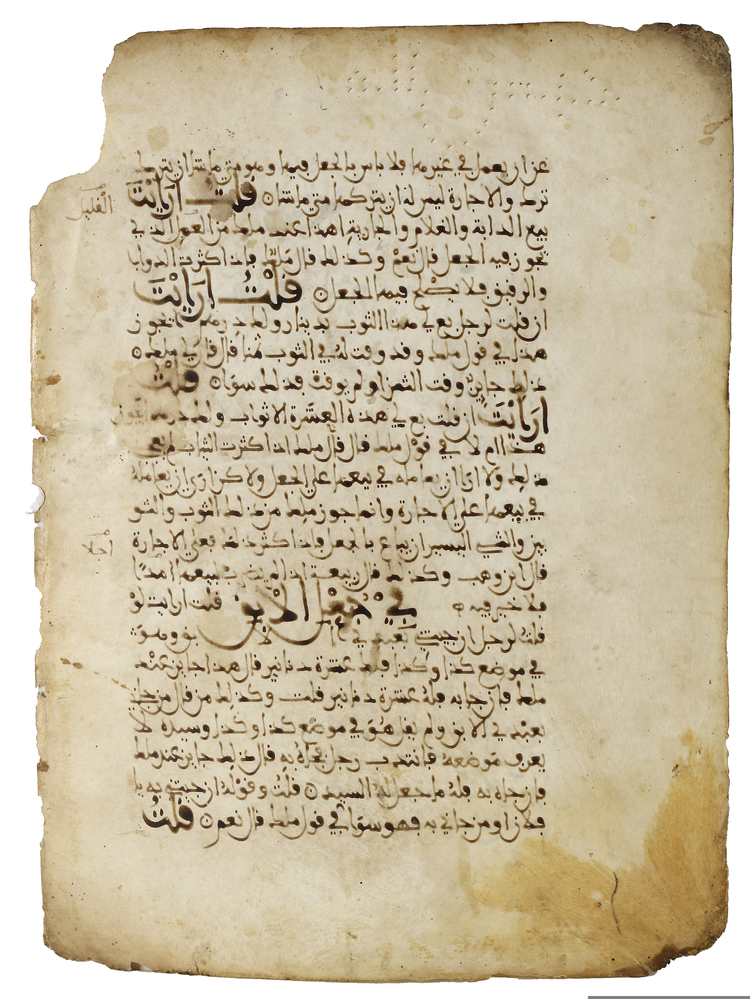 عن ان يعمل في غيرها فلا باس بالجعل فيها ومتى ما شا ان يترك
ترك والاجارة ليس له ان يتركها متى ما شا قلت ارايت
بيع الدابة والغلام والجارية اهذا عند ملك من العمل الذي
يجوز فيه الجعل قال نعم وكذلك قال ملك فاذا كثرت الدواب
والرقيق فلا يصلح فيه الجعل قلت ارايت
ان قلت لرجل بع لي هذا الثوب بدينار ولك درهم يجوز
هذا في قول ملك وقد وقت له في الثوب ثمنا قال قال لي ملك
ذلك جايز وقت الثمن او لم يوقت فذلك سوا قلت
ارايت ان قلت بع لي هذه العشرة الاثواب ولك درهم ايجوز
هذا ام لا في قول ملك قال قال ملك اذا كثرت الثياب لم يعجبني
ذلك ولا ارى ان يعامله في بيعها على الجعل ولاكن ارى ان يعامله
في بيعها على الاجارة وانما جوز ملك من ذلك الثوب والثو
بين والشي اليسير ان يباع بالجعل فاذا كثر ذلك فعلى الاجارة
قال ابن وهب وكذلك قال ربيعة اذا لم يضرب لبيعها امدا
فلا خير فيه
في جعل الابق قلت ارايت لو
قلت لرجل ان جيت بعبدي في
في موضع كذا وكذا فلك عشرة دنانير قال هذا جايز عند
ملك فان جا به فله عشرة دنانير قلت وكذلك من قال من جاني
بعبدي الابق ولم يقل هو في موضع كذا وكذا وسيده لا
يعرف موضعه فانتدب رجل فجاه به قال ذلك جايز عند ملك
فان جاه به فله ما جعل له السيد قلت وقوله ان جيت به يا
فلان او من جاني به فهو سوا في قول ملك قال نعم قلت
القليل